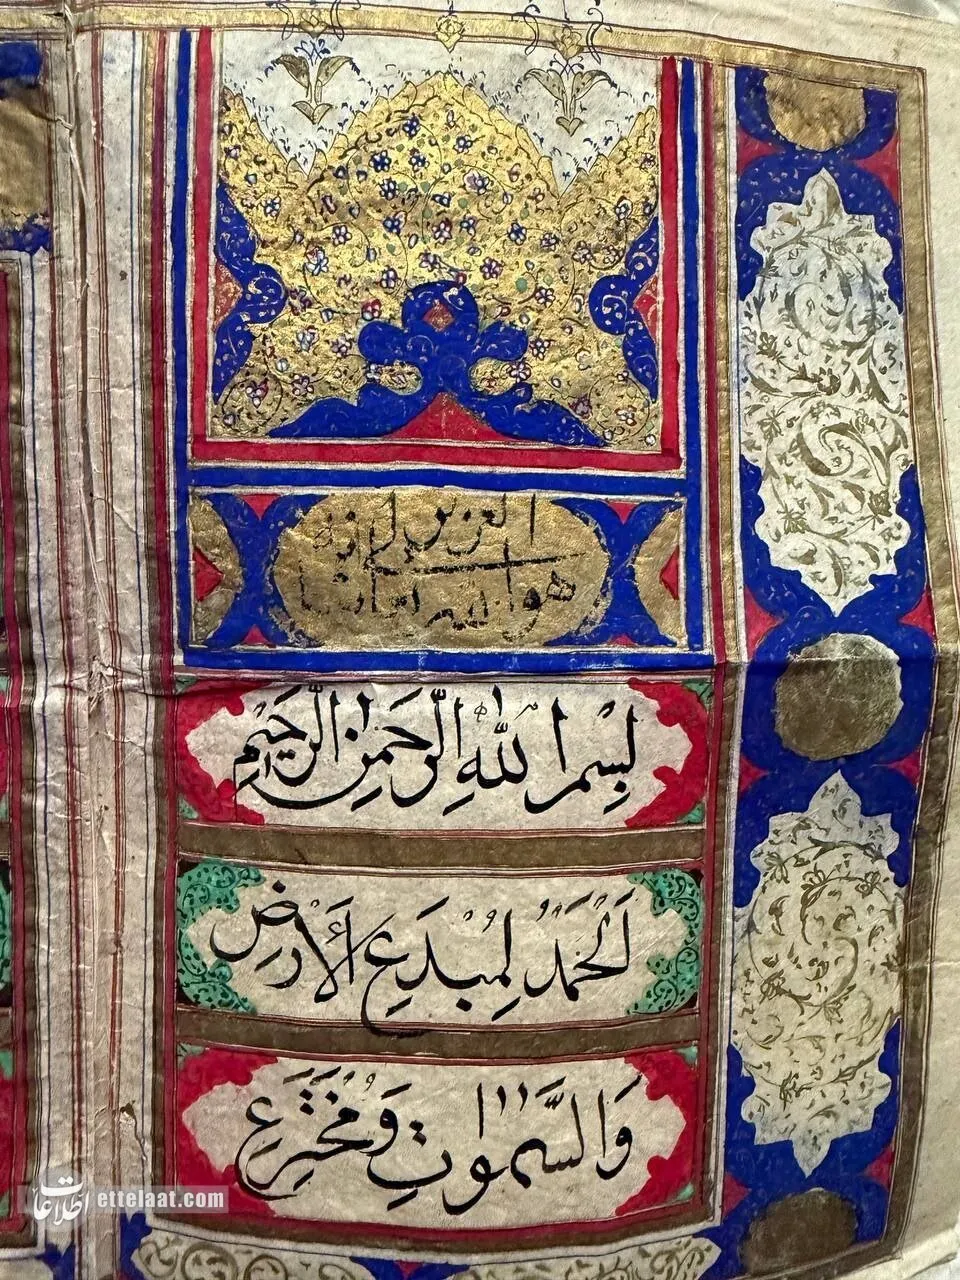 العزیز
هو الله تعالی
بِسْمِ اللهِ الرَّحْمنِ الرَّحیمِ
اَلْحَمْدُ لِمُبْدَعِ الْأَرْضِ
وَالسَّمواتِ وَمُخْتَرِعِ
اطلاعات ettelaat.com